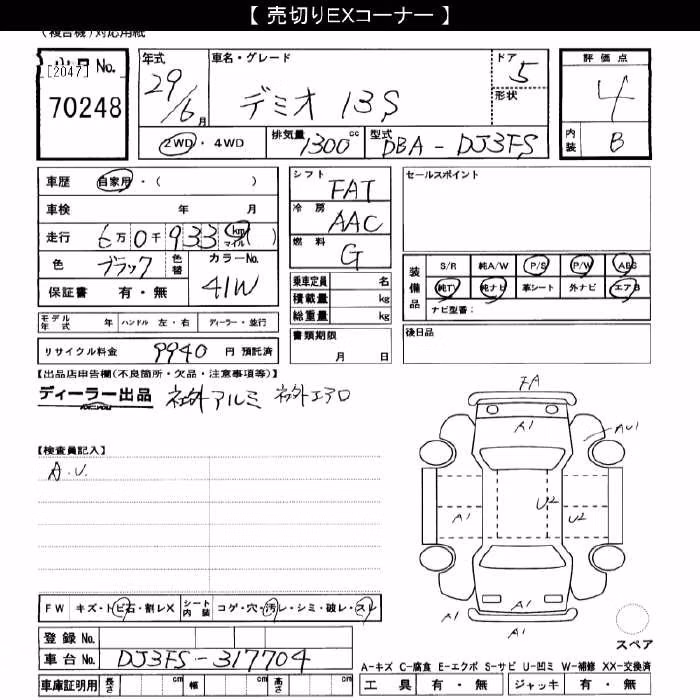 【 売切りEXコーナー 】
(複合機)対応用紙
出品 No.
[2047]
70248
年式 29/6月
車名・グレード デミオ 13S
ドア 5
形状
評価点 4
内装 B
2WD・4WD
排気量 1300 cc
型式 DBA-DJ3FS
車歴 自家用・( )
車検 年 月
走行 6万0千933 km マイル ( )
色 ブラック 色替 カラーNo. 41W
保証書 有・無
シフト FAT
冷房 AAC
燃料 G
乗車定員 名
積載量 kg
総重量 kg
書類期限 月 日
セールスポイント
装備品
S/R 純A/W P/S P/W ABS
純TV 純ナビ 革シート 外ナビ エアB
ナビ型番:
後日品
モデル年式 年 ハンドル 左・右 ディーラー・並行
リサイクル料金 9940 円 預託済
【出品店申告欄(不良箇所・欠品・注意事項等)】
ディーラー出品 社外アルミ 社外エアロ
【検査員記入】
A.U.
FA
A1
AU1
U2
A1
U2
A1
A1
A1
FW キズ・トビ石・割レX シート内装 コゲ・穴・汚レ・シミ・破レ・スレ
スペア
登録 No.
車台 No. DJ3FS-317704
A-キズ C-腐食 E-エクボ S-サビ U-凹ミ W-補修 XX-交換済
車庫証明用 長さ cm 幅 cm 高さ cm
工具 有・無 ジャッキ 有・無